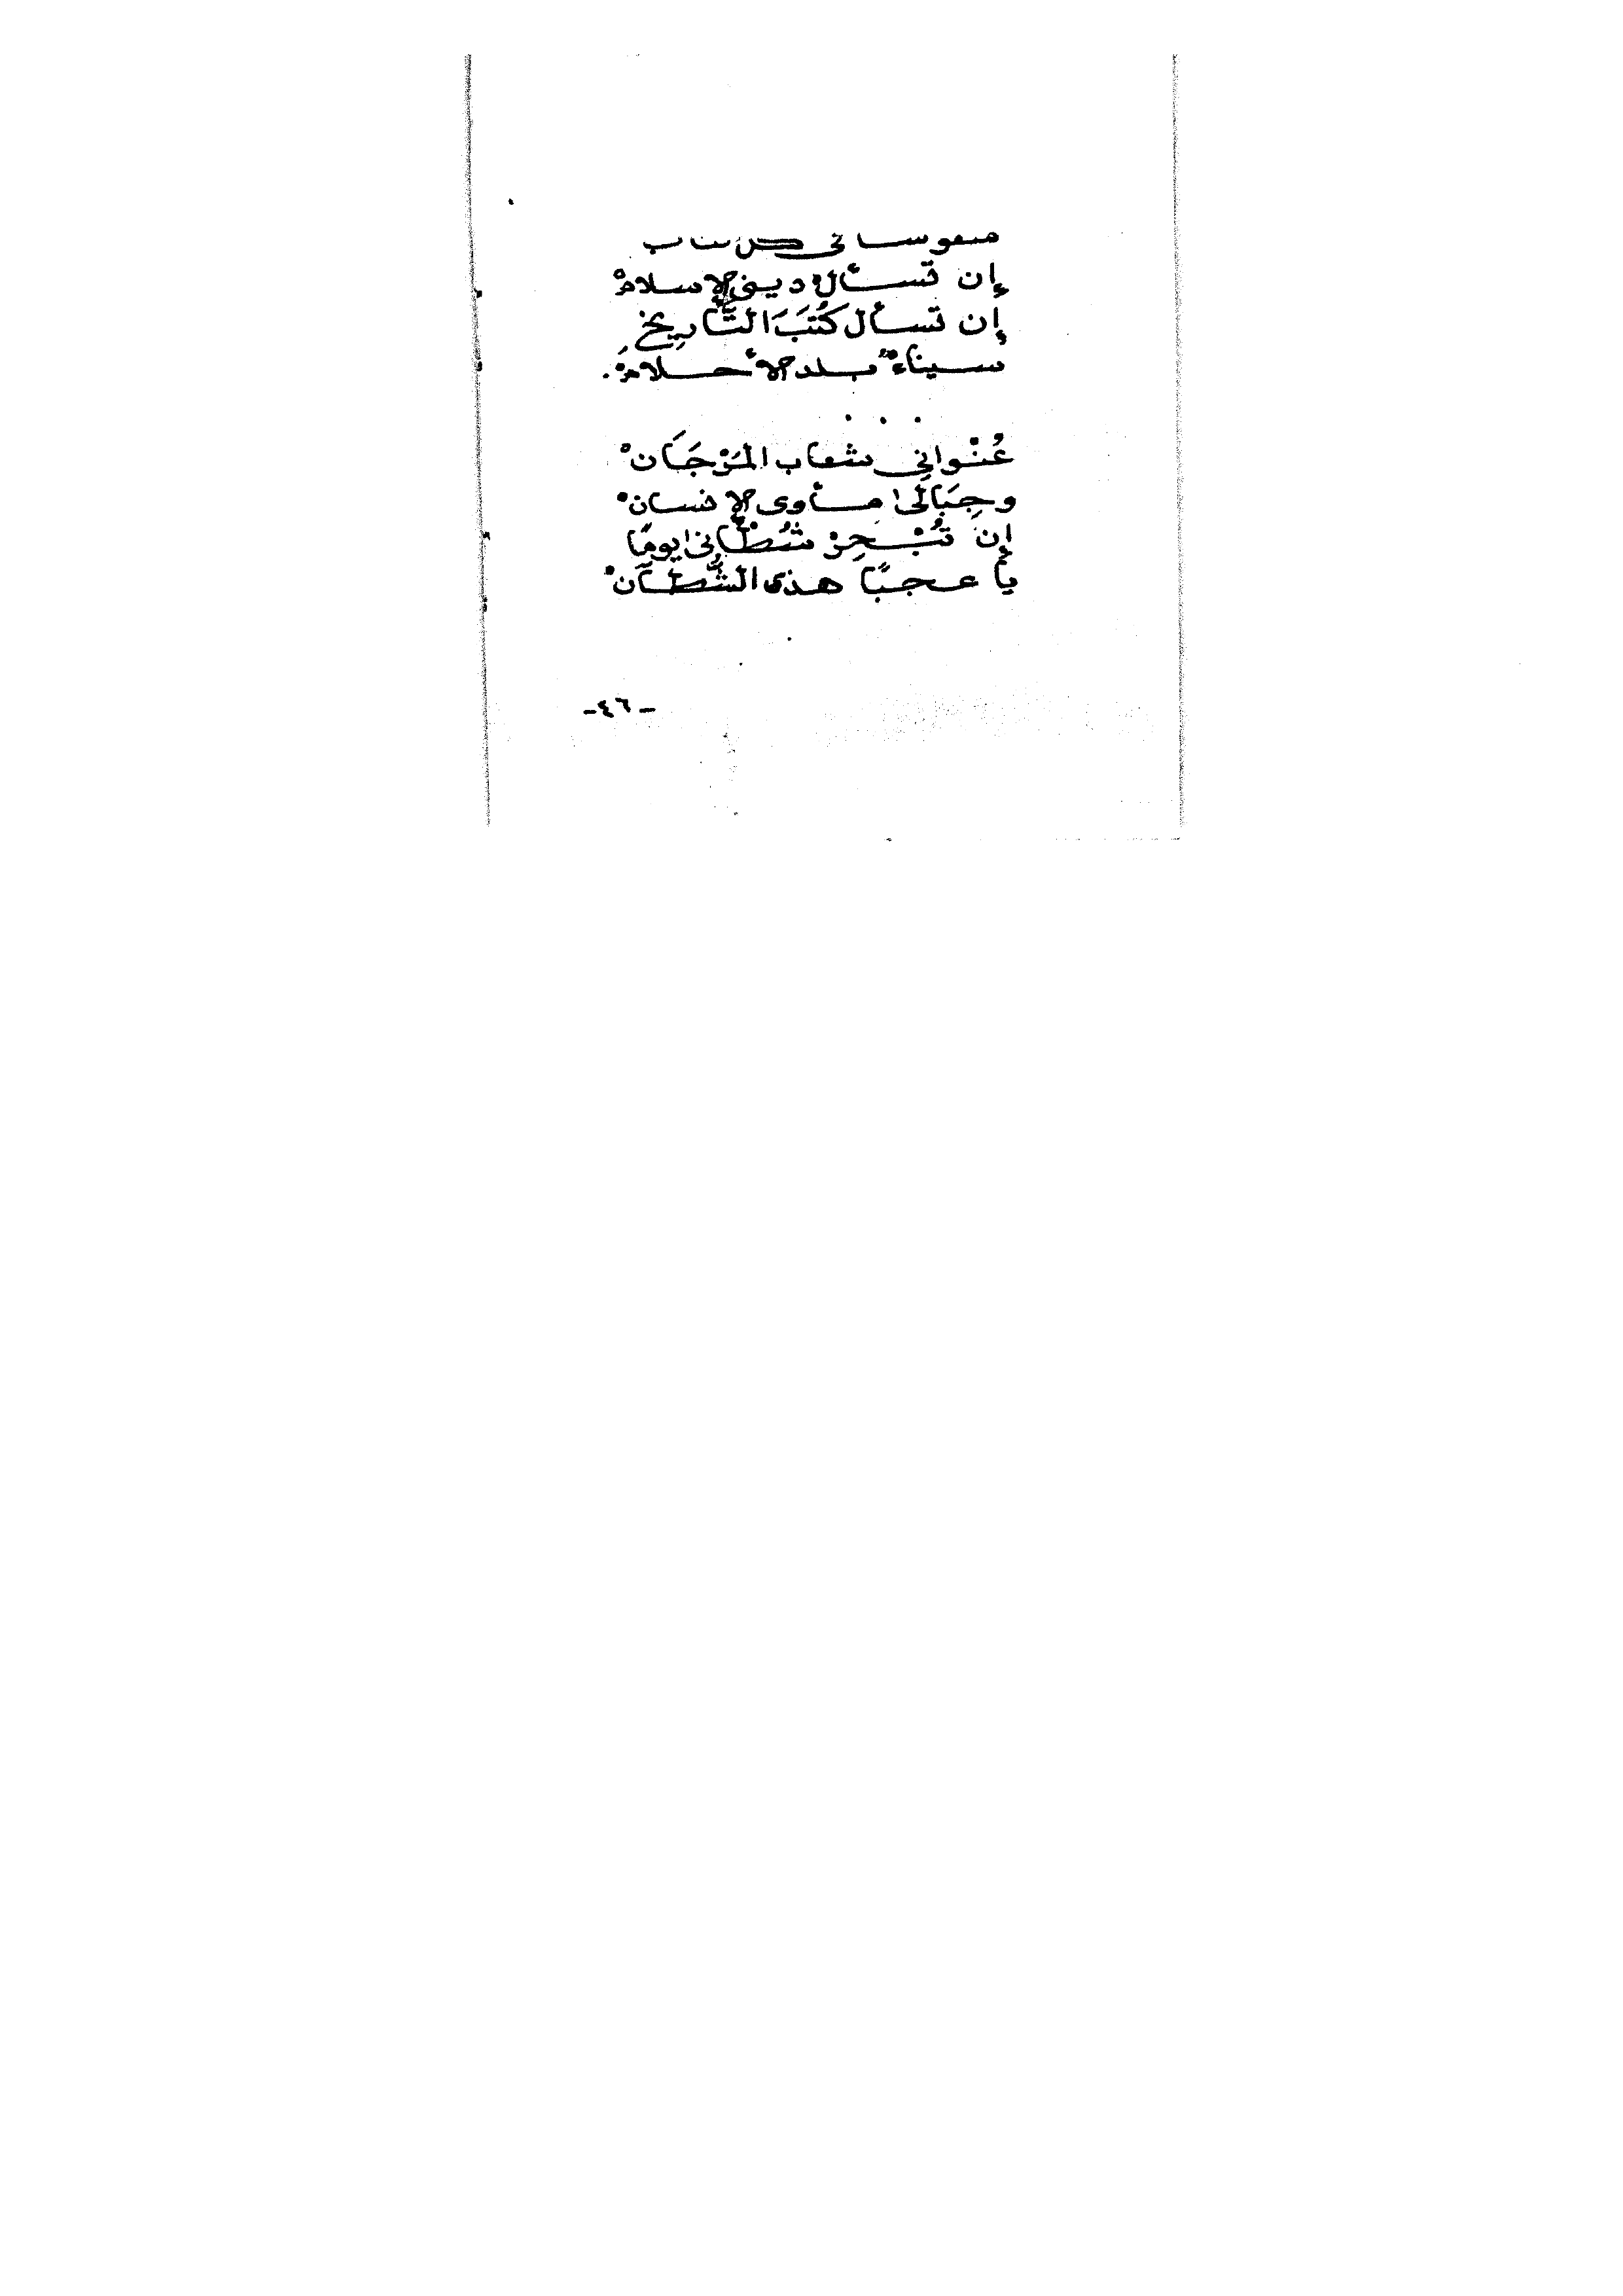 في كل كتاب
إن تسأل دين الإسلامْ
إن تسأل كُتَبَ التَّاريِخِ
سيناءُ بلد الأحلامْ.
. . .
عُنْواني شعاب المَرْجَانْ
وجِبَالى مأوى الإنسانْ
إن تُبْحِرْ شُطْآنِى يومًا
يا عجبًا هذى الشُّطآنْ
- ٤٦ -